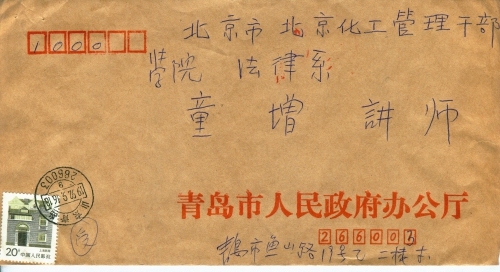 北京市 北京化工管理干部
10000
学院 法律系
童 增 讲 师
266003
20分
中国人民邮政
青岛市人民政府办公厅
266003
鱼山路19号乙 二栋